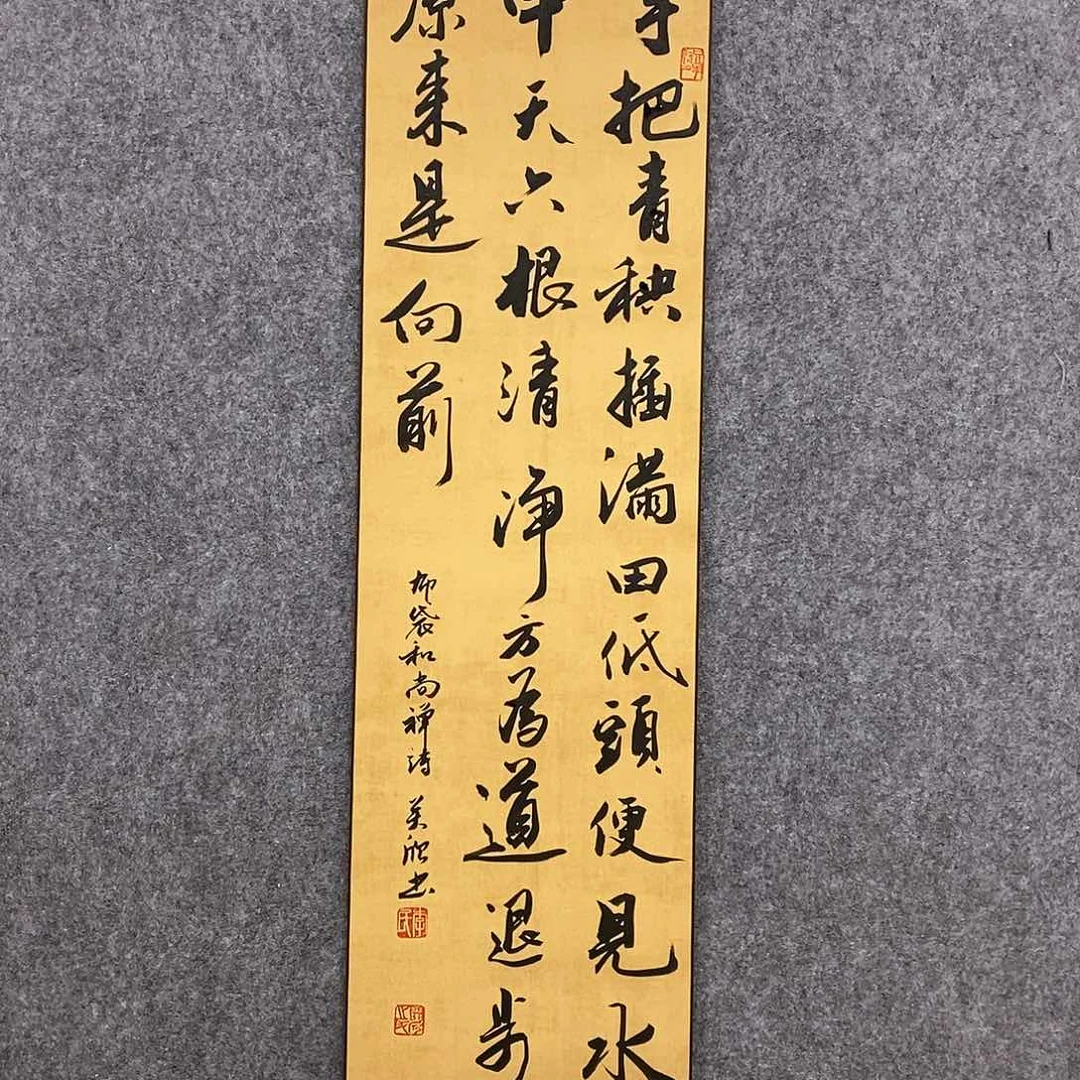 手把青秧插滿田低頭便見水
中天六根清淨方為道退步
原來是向前
布袋和尚禅诗